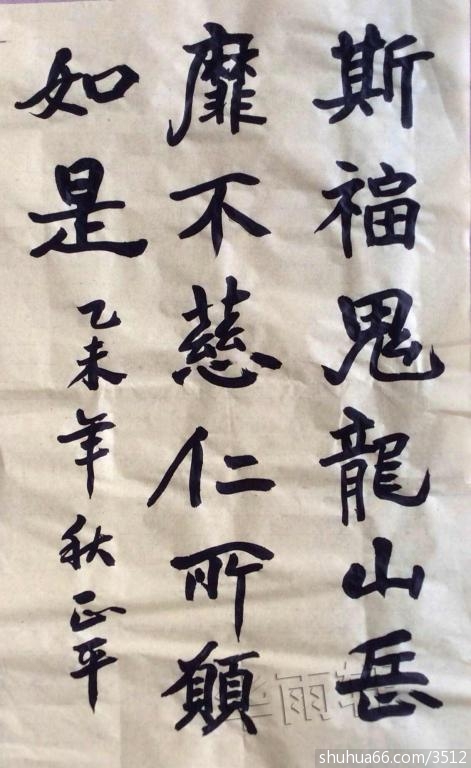 斯福鬼龍山岳
靡不慈仁所願
如是 乙未年秋 正平
shuhua66.com/3512